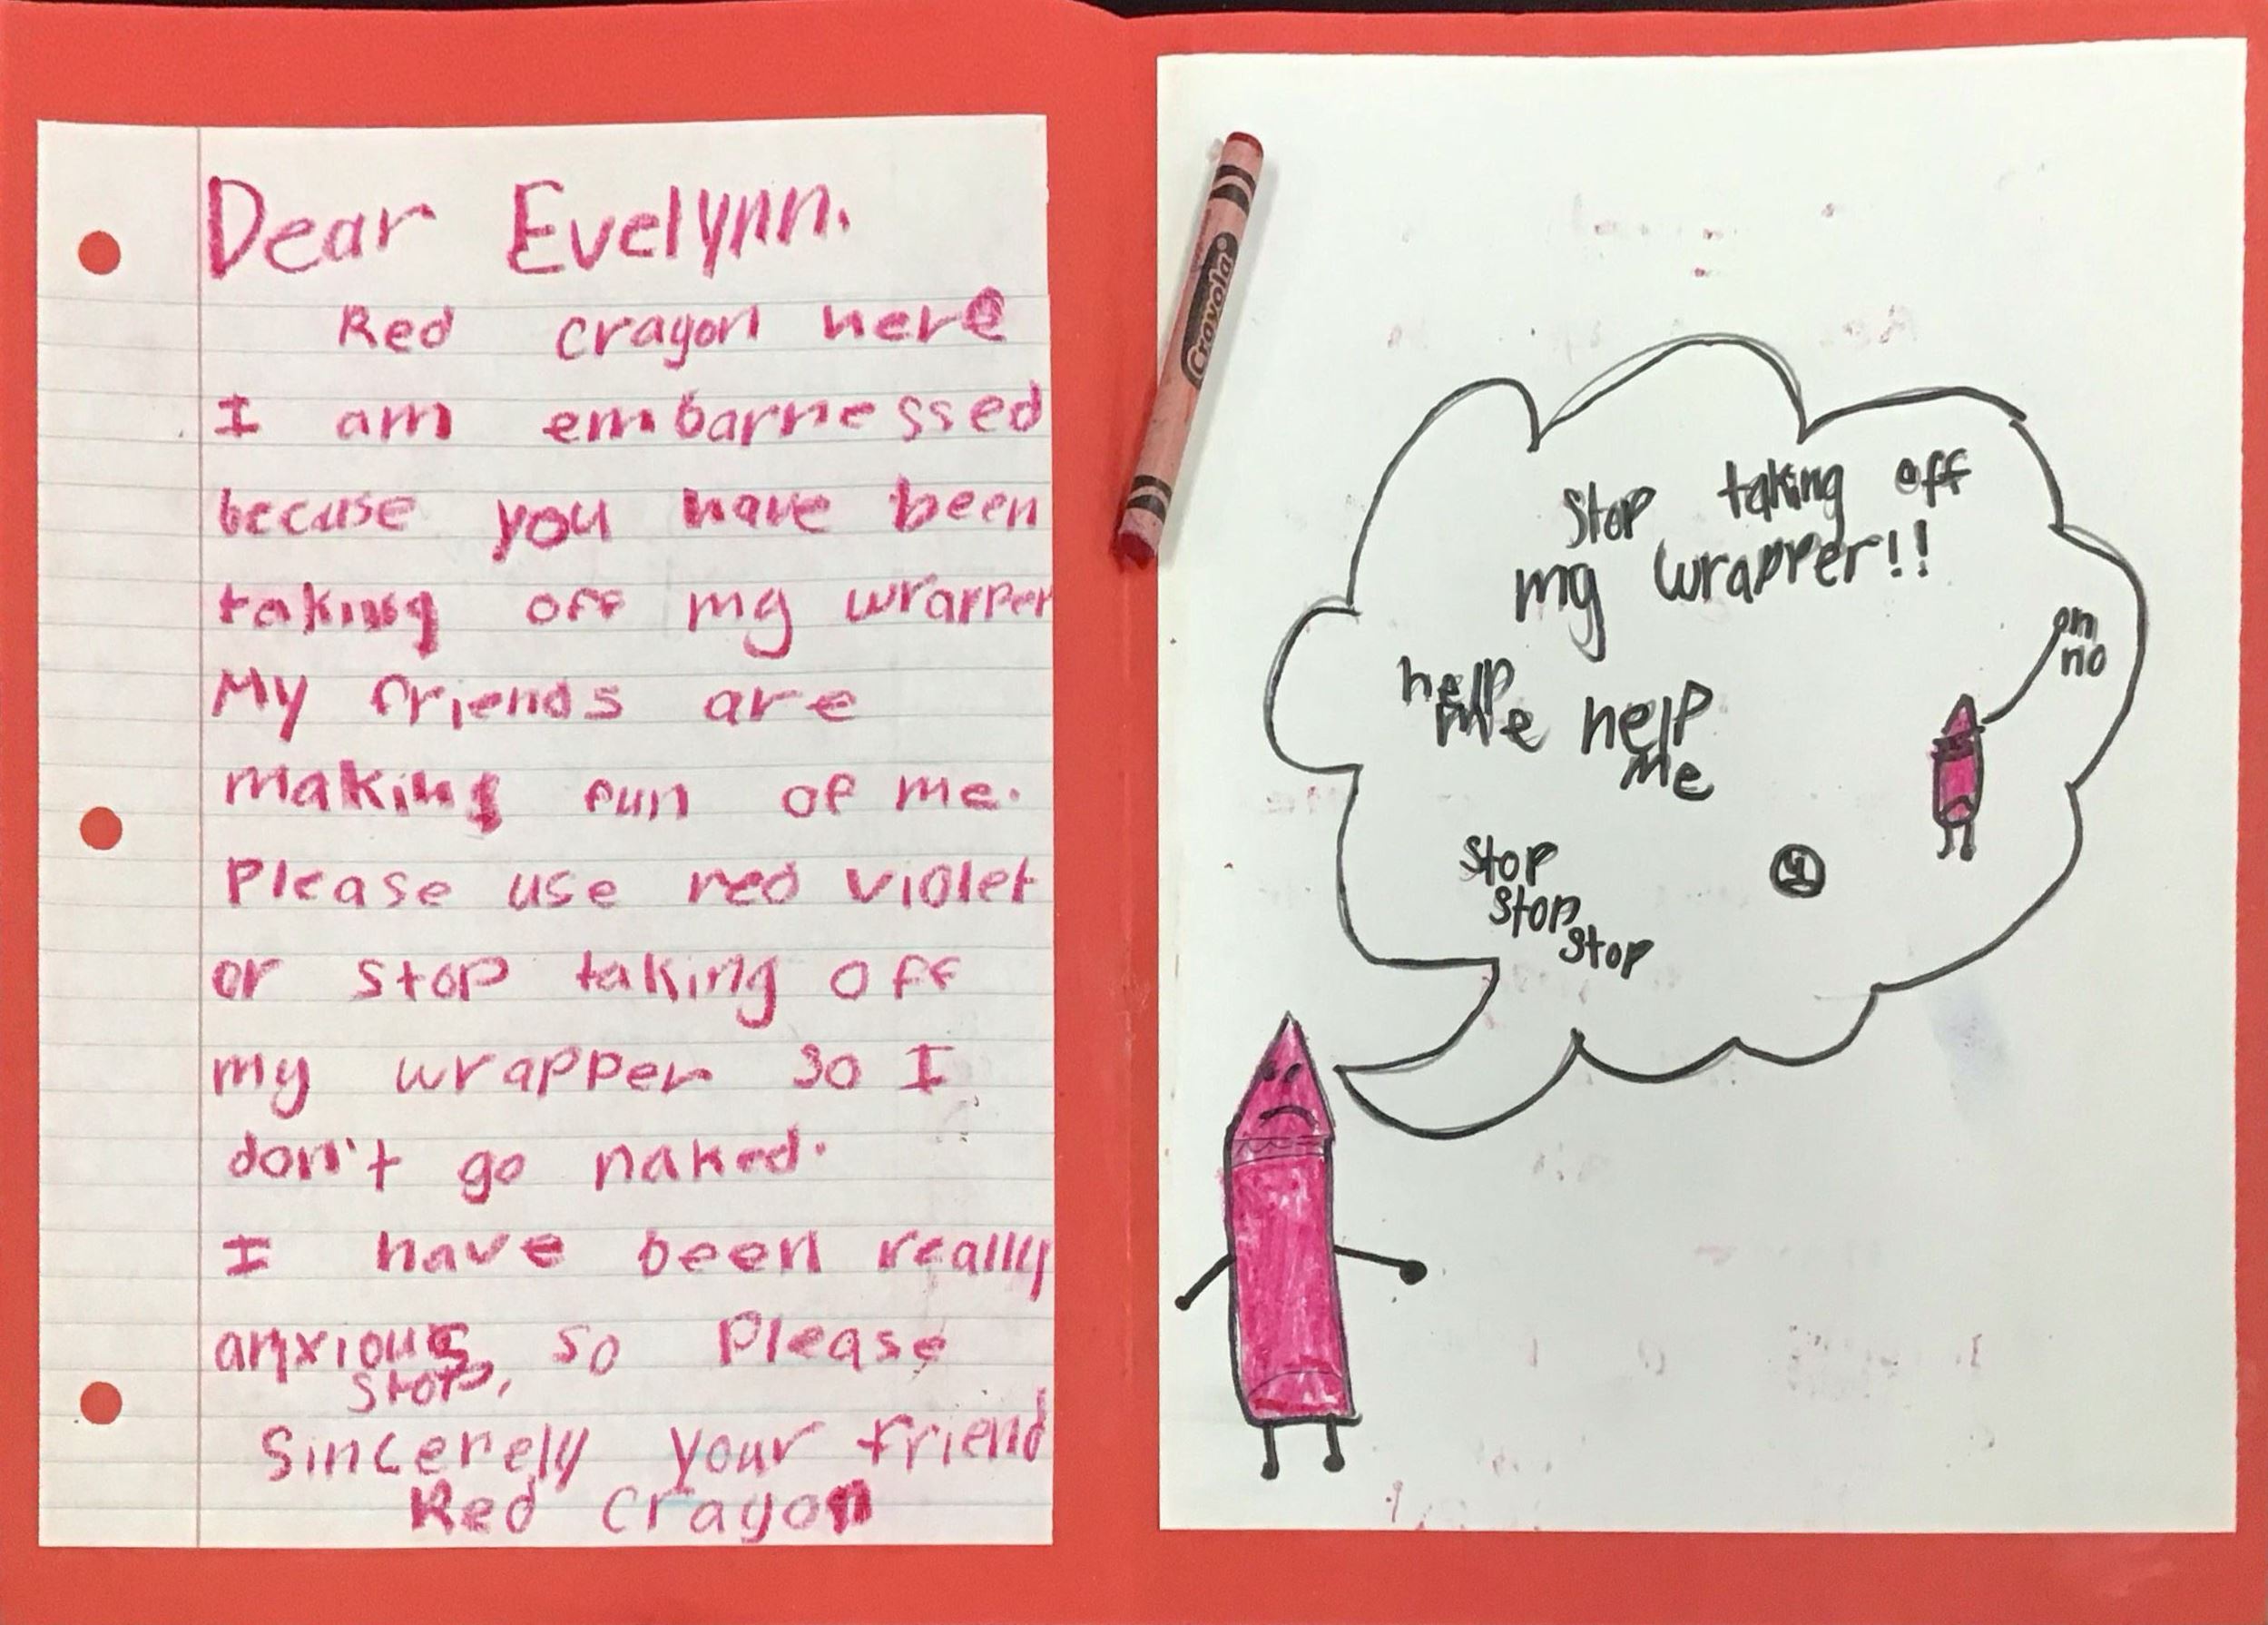 Dear Evelynn.
Red crayon here
I am embarressed
becuse you have been
taking off my wrapper
My friends are
making fun of me.
Please use red violet
or stop taking off
my wrapper so I
don't go naked.
I have been really
anxious, so Please
stop,
Sincerely your friend
Red Crayon
Crayola
Stop taking off
my wrapper!!
oh
no
help
me help
me
Stop
Stop
Stop